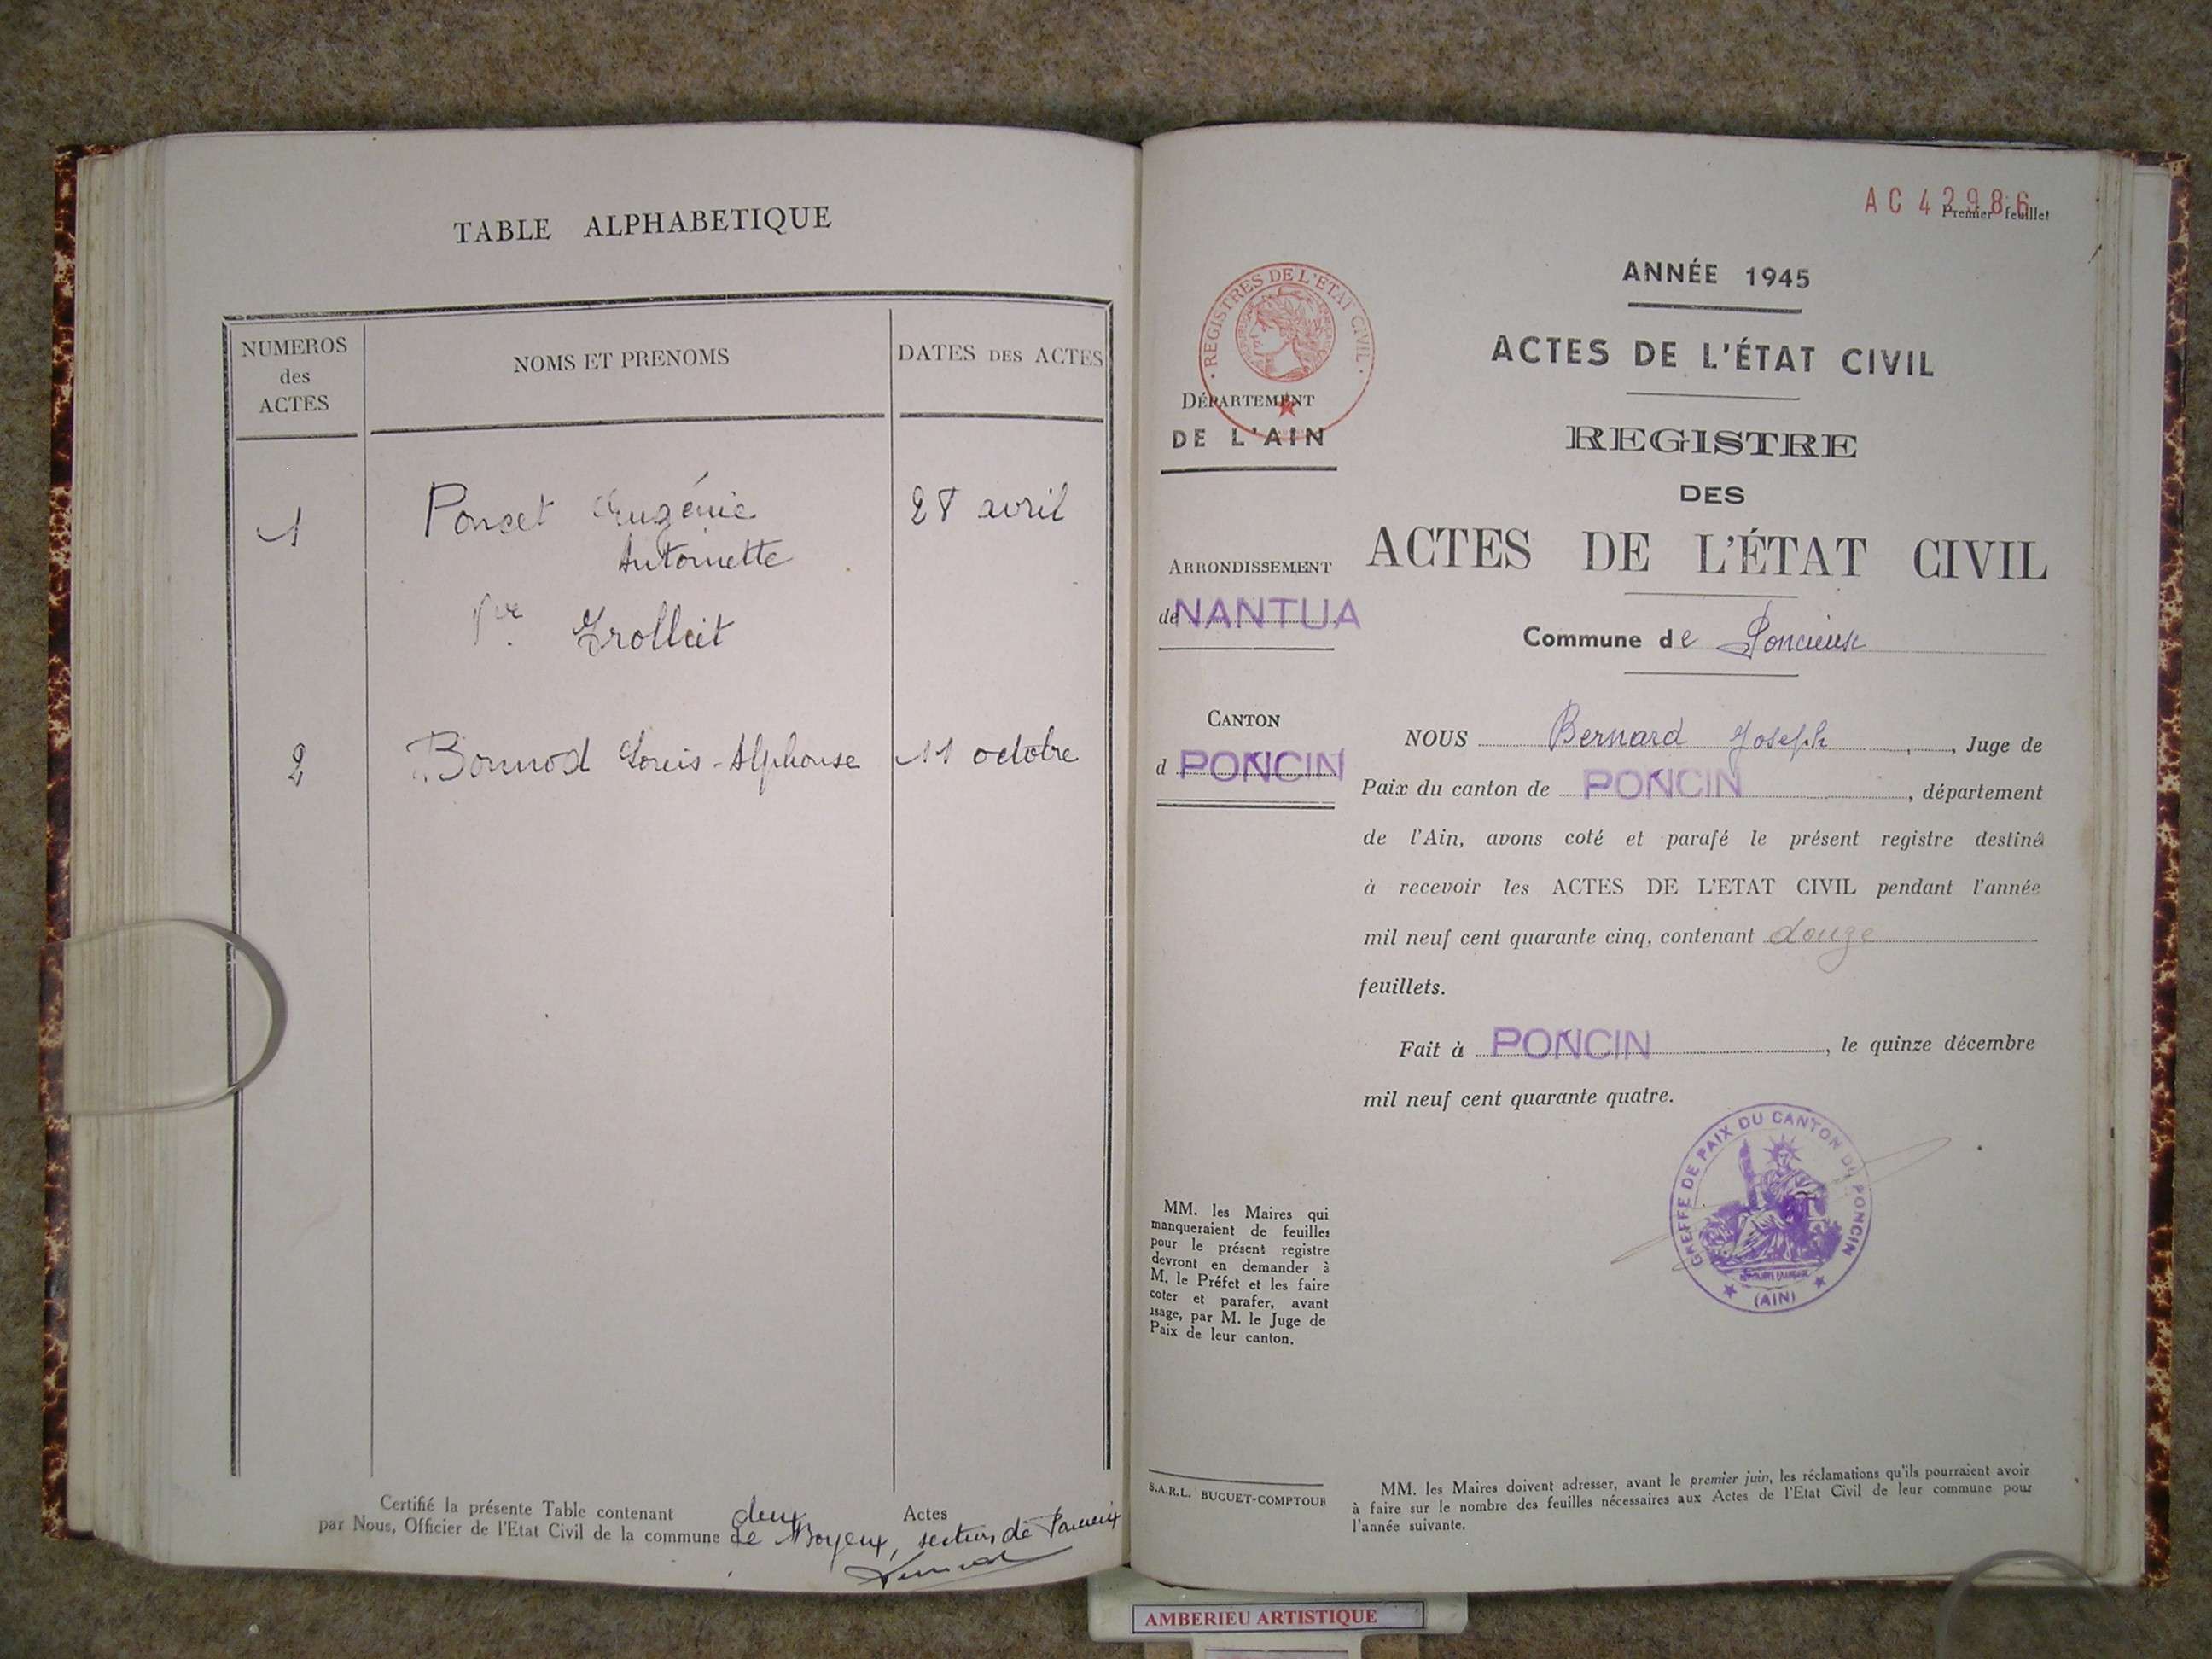 TABLE ALPHABETIQUE
NUMEROS
des
ACTES
NOMS ET PRENOMS
DATES DES ACTES
1
Poncet Eugénie
Antoinette
28 avril
Vve Grollet
2
Bonnod Louis-Alphonse
11 octobre
Certifié la présente Table contenant deux Actes
par Nous, Officier de l'Etat Civil de la commune de Boyeux, section de Poncieux
AC 42986
Premier feuillet
ANNÉE 1945
ACTES DE L'ÉTAT CIVIL
REGISTRE
DES
ACTES DE L'ÉTAT CIVIL
Commune de Poncieux
· REGISTRES DE L'ETAT CIVIL ·
DÉPARTEMENT
DE L'AIN
ARRONDISSEMENT
de NANTUA
CANTON
d PONCIN
NOUS Bernard Joseph, Juge de
Paix du canton de PONCIN, département
de l'Ain, avons coté et parafé le présent registre destiné
à recevoir les ACTES DE L'ETAT CIVIL pendant l'année
mil neuf cent quarante cinq, contenant douze
feuillets.
Fait à PONCIN, le quinze décembre
mil neuf cent quarante quatre.
GREFFE DE PAIX DU CANTON DE PONCIN
(AIN)
MM. les Maires qui
manqueraient de feuilles
pour le présent registre
devront en demander à
M. le Préfet et les faire
coter et parafer, avant
usage, par M. le Juge de
Paix de leur canton.
S.A.R.L. BUGUET-COMPTOUR
MM. les Maires doivent adresser, avant le premier juin, les réclamations qu'ils pourraient avoir
à faire sur le nombre des feuilles nécessaires aux Actes de l'Etat Civil de leur commune pour
l'année suivante.
AMBERIEU ARTISTIQUE